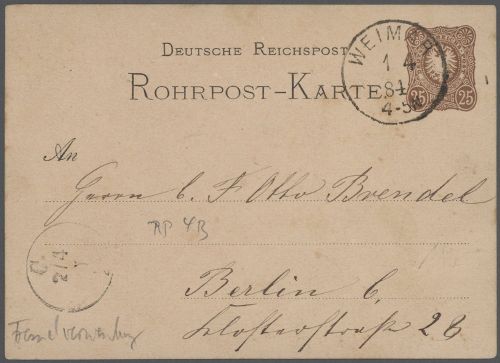 DEUTSCHE REICHSPOST
ROHRPOST-KARTE
WEIMAR
1 4
84
4-5N
25 25
An
Herrn C. F. Otto Brendel
RP 4B
C.
2/4
Berlin C,
Klosterstraße 28
Fernverwendung